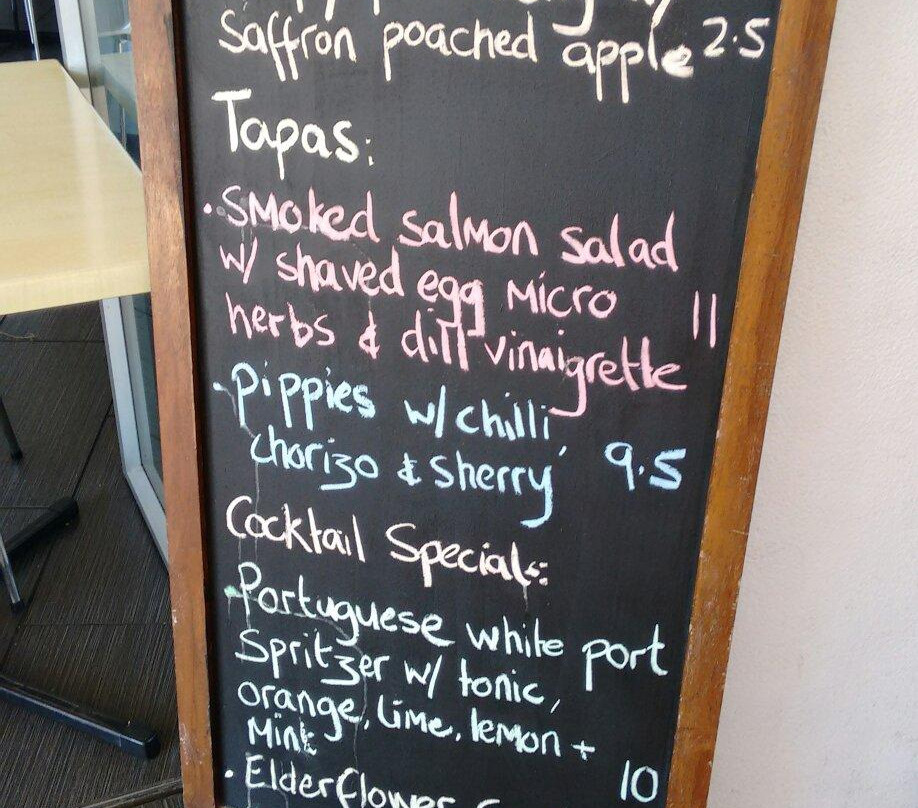 Saffron poached apple 2.5
Tapas:
• Smoked salmon salad
w/ shaved egg micro
herbs & dill vinaigrette 11
• pippies w/ chilli,
chorizo & sherry 9.5
Cocktail Specials:
• Portuguese white port
Spritzer w/ tonic,
orange, lime, lemon +
Mint 10
• Elderflower